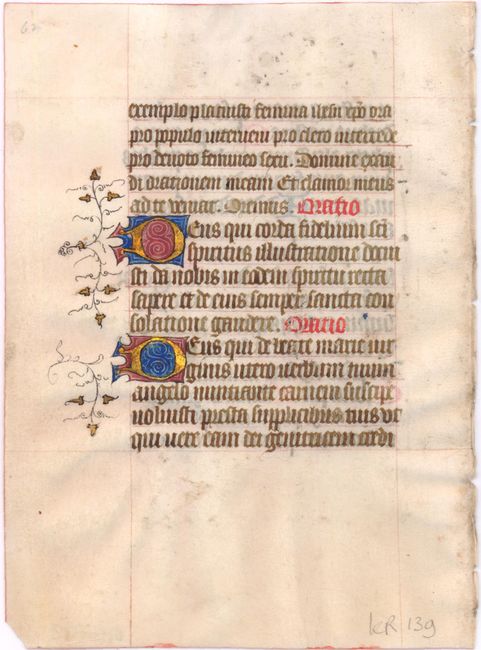 exemplo placuisti femina ihesu xpo ora
pro populo interueni pro clero intercede
pro deuoto femineo sexu. Domine exau
di orationem meam Et clamor meus
ad te veniat. Oremus. Oratio
Deus qui corda fidelium sci
spiritus illustratione docui
sti da nobis in eodem spiritu recta
sapere et de eius semper sancta con
solatione gaudere. Oratio
Deus qui de beate marie vir
ginis vtero verbum tuum
angelo nunciante carnem suscipe
uoluisti presta supplicibus tuis vt
qui vere eam dei genitricem credi
KR 139